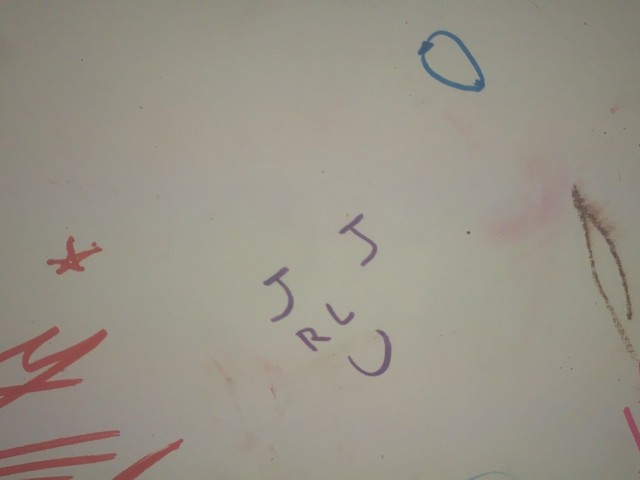 J J
R L